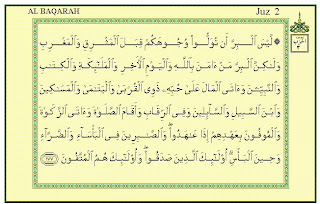 AL BAQARAH
Juz 2
۞ لَّيْسَ ٱلْبِرَّ أَن تُوَلُّوا۟ وُجُوهَكُمْ قِبَلَ ٱلْمَشْرِقِ وَٱلْمَغْرِبِ
وَلَـٰكِنَّ ٱلْبِرَّ مَنْ ءَامَنَ بِٱللَّهِ وَٱلْيَوْمِ ٱلْـَٔاخِرِ وَٱلْمَلَـٰٓئِكَةِ وَٱلْكِتَـٰبِ
وَٱلنَّبِيِّـۧنَ وَءَاتَى ٱلْمَالَ عَلَىٰ حُبِّهِۦ ذَوِى ٱلْقُرْبَىٰ وَٱلْيَتَـٰمَىٰ وَٱلْمَسَـٰكِينَ
وَٱبْنَ ٱلسَّبِيلِ وَٱلسَّآئِلِينَ وَفِى ٱلرِّقَابِ وَأَقَامَ ٱلصَّلَوٰةَ وَءَاتَى ٱلزَّكَوٰةَ
وَٱلْمُوفُونَ بِعَهْدِهِمْ إِذَا عَـٰهَدُوا۟ ۖ وَٱلصَّـٰبِرِينَ فِى ٱلْبَأْسَآءِ وَٱلضَّرَّآءِ
وَحِينَ ٱلْبَأْسِ ۗ أُو۟لَـٰٓئِكَ ٱلَّذِينَ صَدَقُوا۟ ۖ وَأُو۟لَـٰٓئِكَ هُمُ ٱلْمُتَّقُونَ ۝١٧٧